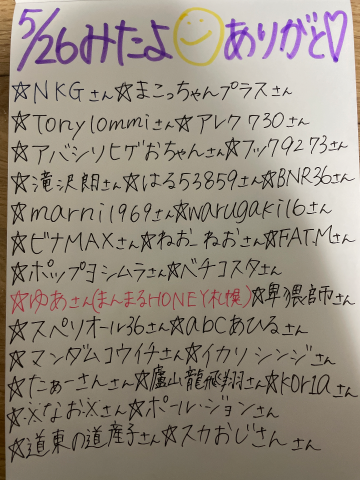 5/26みたよ ありがと♡
☆NKGさん☆まこっちゃんプラスさん
☆Tonyiommiさん☆アレク730さん
☆アバシリヒゲおちゃんさん☆フック79273さん
☆滝沢朗さん☆はる53859さん☆BNR36さん
☆marni1969さん☆warugaki16さん
☆ビナMAXさん☆ねおーねおさん☆FAT.Mさん
☆ポップヨシムラさん☆ベチコスタさん
☆ゆあさん(まんまるHONEY札幌)☆卑猥官師さん
☆スペリオール36さん☆abcあひるさん
☆マンダムコウイチさん☆イカリシンジさん
☆たぁーさんさん☆廬山龍飛翔さん☆koriaさん
☆※なお※さん☆ポール・ジョンさん
☆道東の道産子さん☆スカおじさんさん